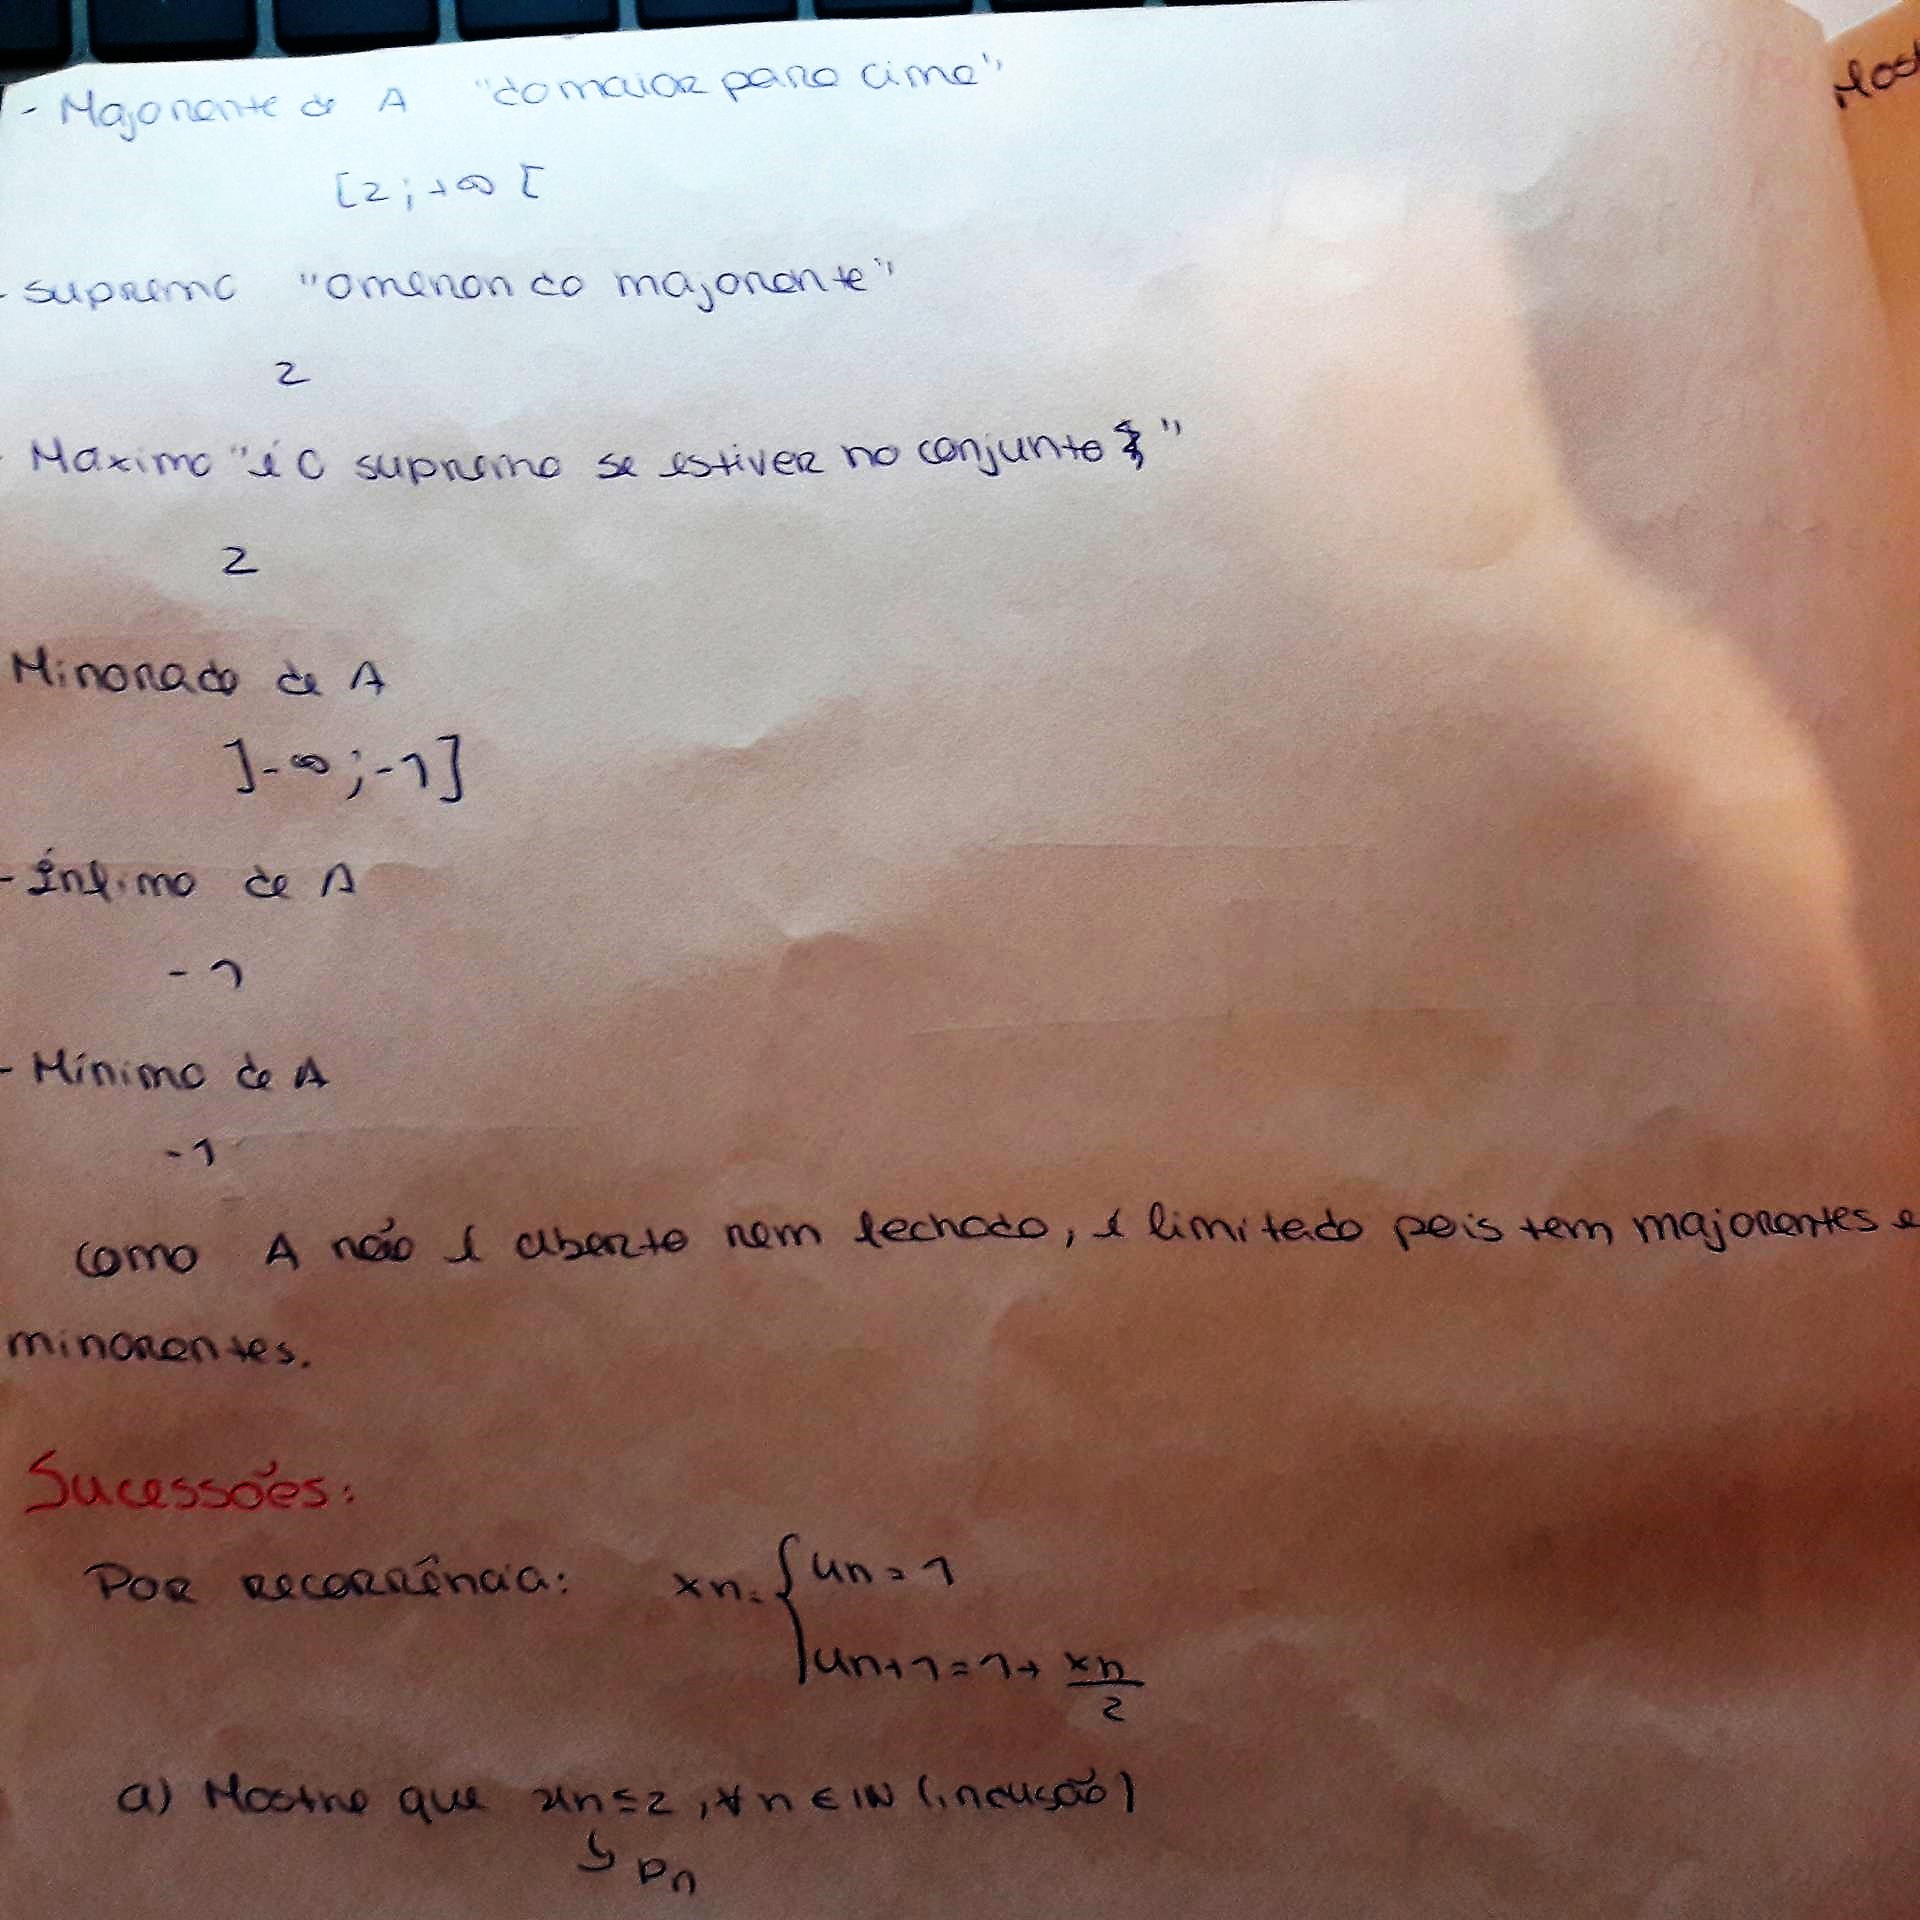 - Majorante de A "do maior para cima"
[2; +∞ [
- supremo "o menor do majorante"
2
- Maximo "é o supremo se estiver no conjunto"
2
Minorado de A
]-∞; -1]
- Ínfimo de A
-1
- Mínimo de A
-1
como A não é aberto nem fechado, é limitado pois tem majorantes e
minorantes.
Sucessões:
Por recorrência: xn: { un = 1
un+1 = 1 + xn/2
a) Mostre que xn ≤ 2, ∀ n ∈ IN (indução)
↳ Pn